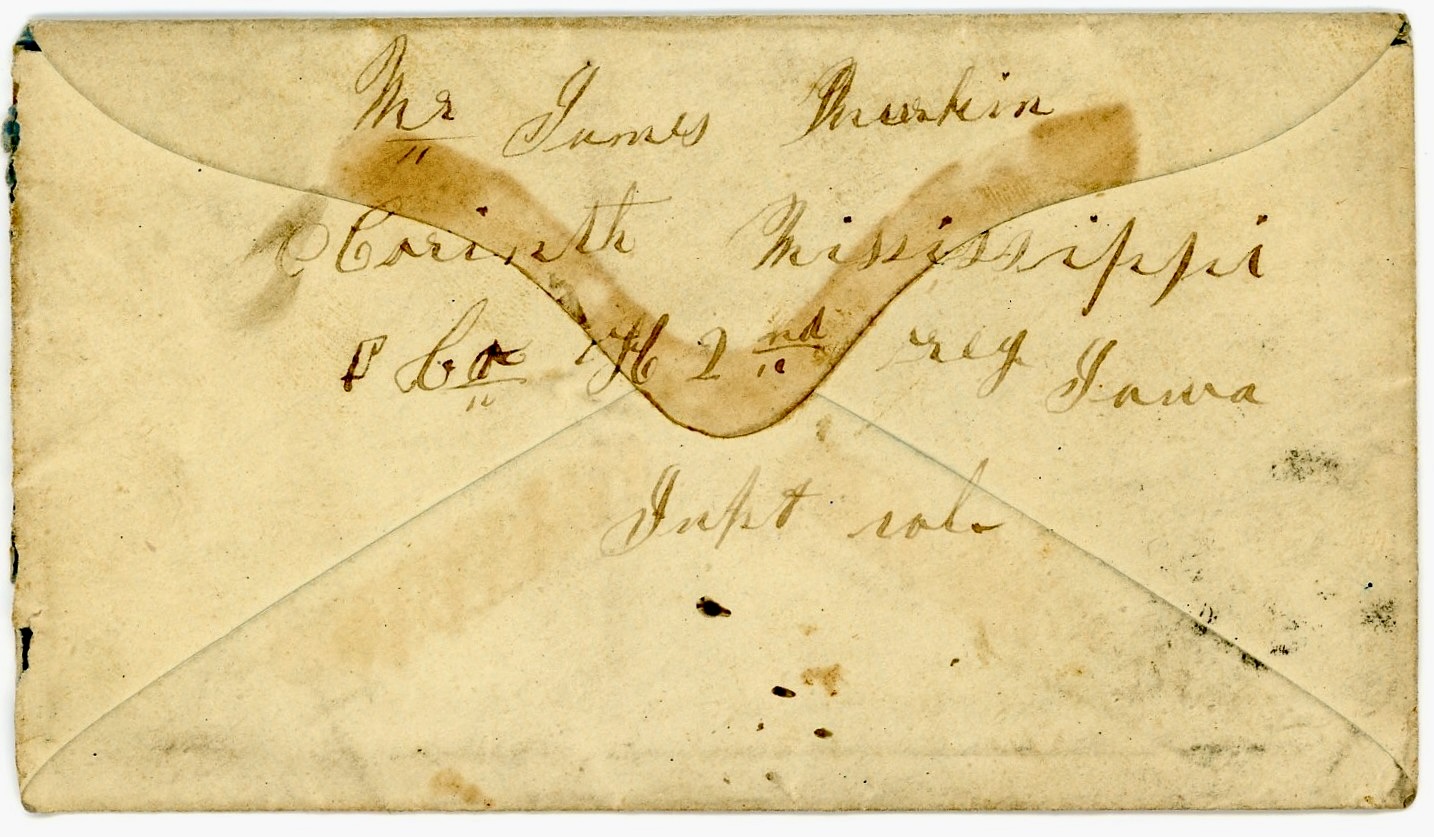 Mr James Durkin
Corinth Mississippi
Co H 2nd reg Iowa
Inft vol